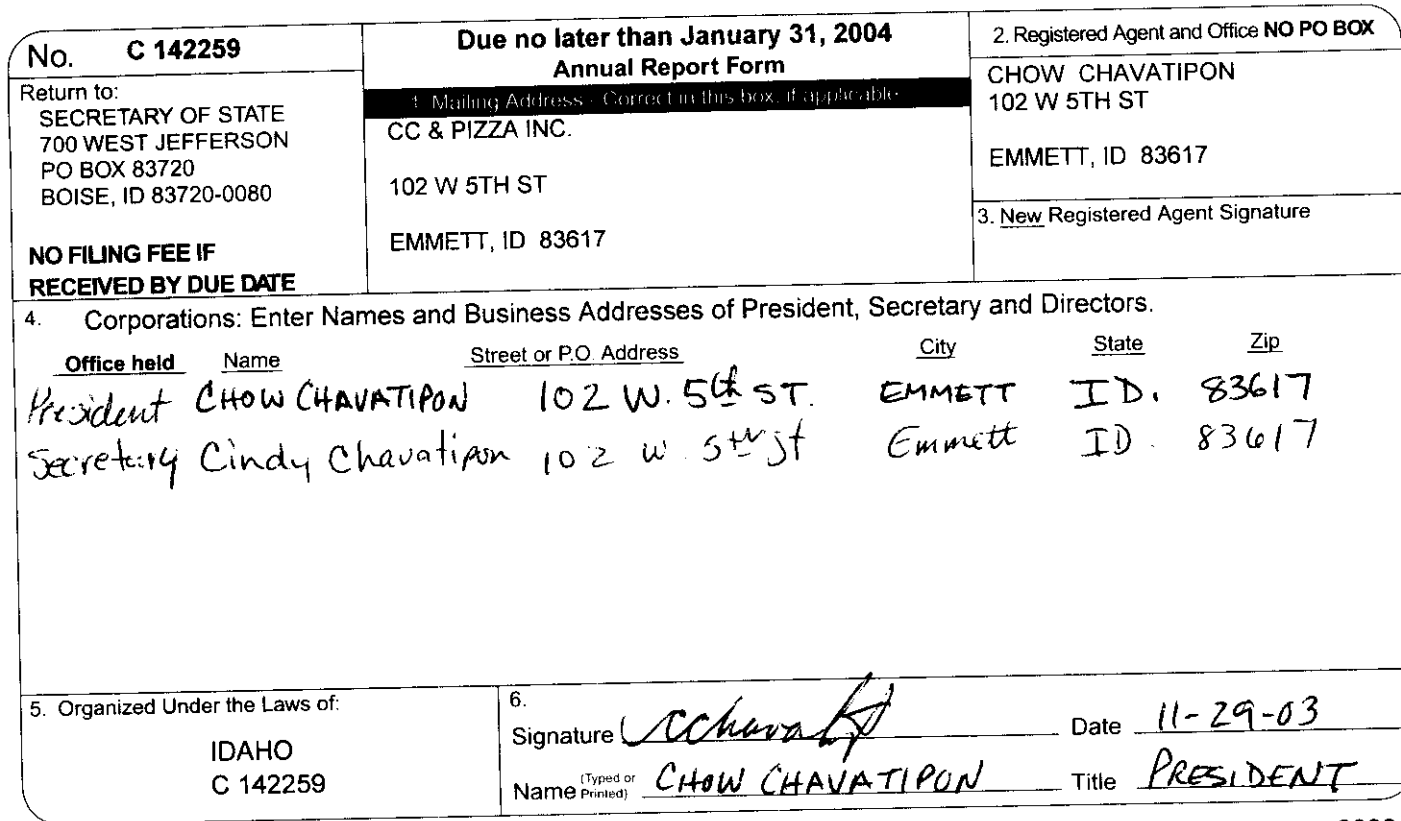 No. C 142259
Return to:
SECRETARY OF STATE
700 WEST JEFFERSON
PO BOX 83720
BOISE, ID 83720-0080
NO FILING FEE IF
RECEIVED BY DUE DATE
Due no later than January 31, 2004
Annual Report Form
1. Mailing Address - Correct in this box, if applicable
CC & PIZZA INC.
102 W 5TH ST
EMMETT, ID 83617
2. Registered Agent and Office NO PO BOX
CHOW CHAVATIPON
102 W 5TH ST
EMMETT, ID 83617
3. New Registered Agent Signature
4. Corporations: Enter Names and Business Addresses of President, Secretary and Directors.
Office held Name Street or P.O. Address City State Zip
President CHOW CHAVATIPON 102 W. 5th ST. EMMETT ID. 83617
Secretary Cindy Chavatipon 102 W. 5th St Emmett ID. 83617
5. Organized Under the Laws of:
IDAHO
C 142259
6.
Signature Date 11-29-03
Name (Typed or Printed) CHOW CHAVATIPON Title PRESIDENT